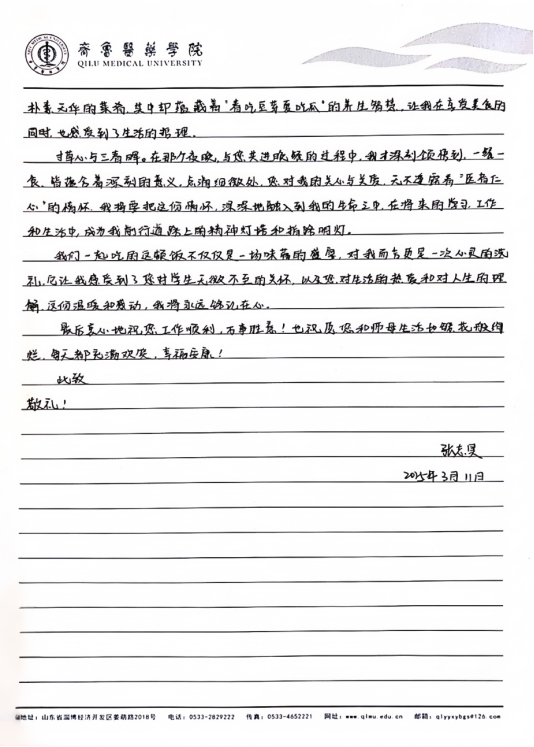 齊魯醫藥學院
QILU MEDICAL UNIVERSITY
朴素无华的菜肴,其中却蕴藏着"春吃豆芽夏吃瓜"的养生智慧,让我在享受美食的
同时,也感受到了生活的哲理。
寸草心与三春晖。在那个夜晚,与您共进晚餐的过程中,我才深刻领悟到,一餐一
食,皆蕴含着深刻的意义,点滴细微处,您对我的关心与关爱,无不透露着"医者仁
心"的情怀,我将要把这份情怀,深深地融入到我的生命之中,在将来的学习、工作
和生活中,成为我前行道路上的精神灯塔和指路明灯。
我们一起吃的这顿饭不仅仅是一场味蕾的盛宴,对我而言更是一次心灵的洗
礼,它让我感受到了您对学生无微不至的关怀,以及您对生活的热爱和对人生的理
解,这份温暖和感动,我将永远铭记在心。
最后衷心地祝您工作顺利,万事胜意!也祝愿您和师母生活如锦花般绚
烂,每天都充满欢笑,幸福安康!
此致
敬礼!
张志昊
2025年3月11日
地址:山东省淄博经济开发区姜萌路2018号 电话:0533-2829222 传真:0533-4652221 网址:www.qlmu.edu.cn 邮箱:qlyyxybgs@126.com